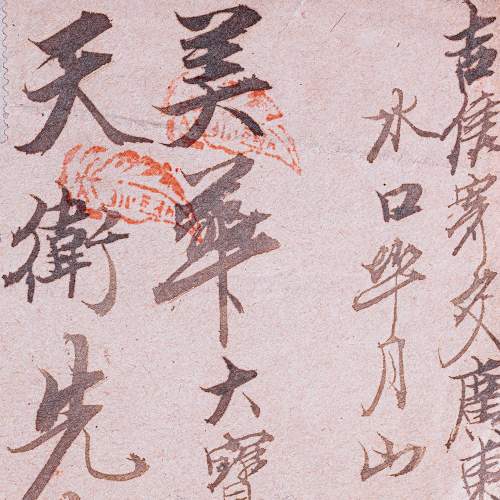 吉便寄交廣東
水口埠月山
美華大寶
天衛先